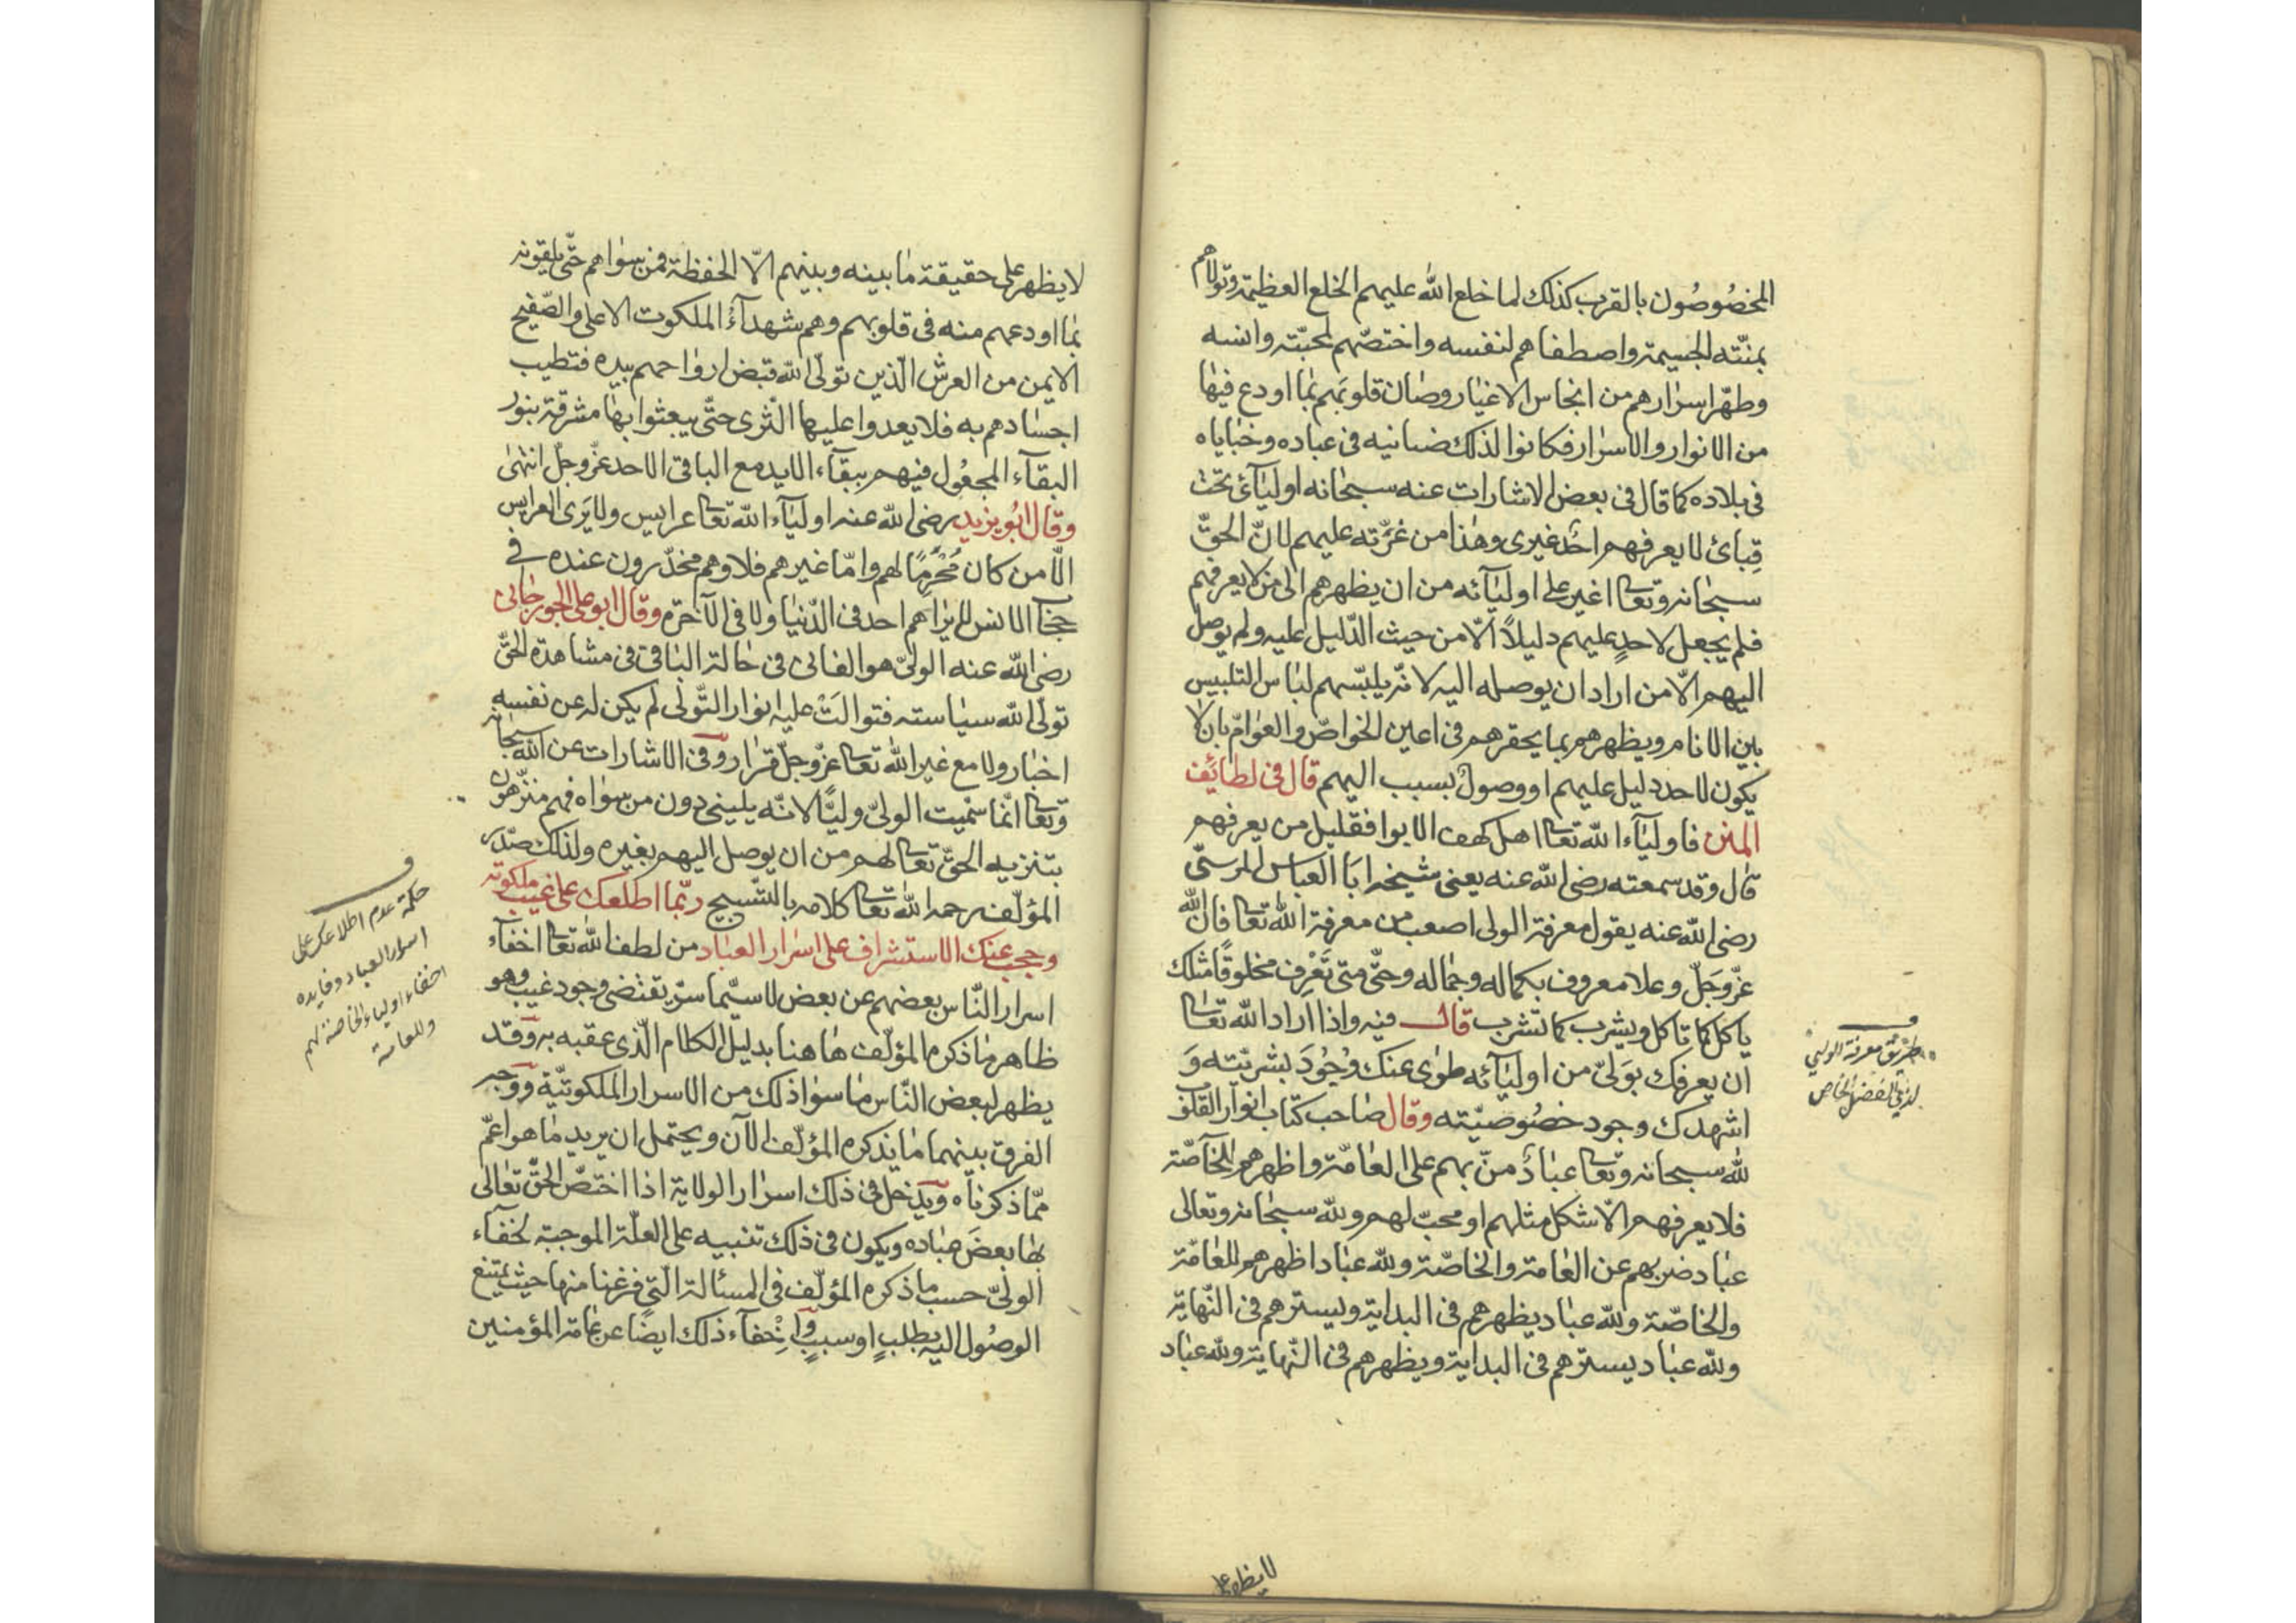 المخصُوصُون بالقرب كذلك لما خلع الله عليهم الخلع العظيمة وتولاهم
بمنّته الجسيمة واصطفاهم لنفسه واختصّهم لمحبّته وانسه
وطهّر اسرارهم من انجاس الاغيار وصان قلوبهم بما اودع فيها
من الانوار والاسرار فكانوا لذلك ضنائنه فى عباده وخباياه
فى بلاده كما قال فى بعض الاشارات عنه سبحانه اوليآئى تحت
قبائ لا يعرفهم احد غيرى وهذا من غيرته عليهم لانّ الحقّ
سبحانه وتعا اغير على اوليآئه من ان يظهرهم الى من لا يعرفهم
فلم يجعل لاحد عليهم دليلاً الّا من حيث الدّليل عليه ولم يوصل
اليهم الّا من اراد ان يوصله اليه لانّه يلبّسهم لباس التلبيس
بين الانام ويظهرهم بما يحقرهم فى اعين الخواصّ والعوامّ بان لا
يكون لاحد دليل عليهم او وصول بسبب اليهم قال فى لطائف
المنن فاوليآء الله تعا اهل كهف الايوا فقليل من يعرفهم
قال وقد سمعته رضى الله عنه يعنى شيخه ابا العباس المرسىّ
رضى الله عنه يقول معرفة الولى اصعب من معرفة الله تعا فان الله
عزّ وجَلّ وعلا معروف بكماله وجماله وحتّى متى تَعْرِف مخلوقًا مثلك
ياكل كما تاكل ويشرب كما تشرب قال فيه واذا اراد الله تعا
ان يعرفك بوَلىّ من اوليآئه طوى عنك وُجُودَ بشريّته وَ
اشهدك وجود خصُوصيّته وقال صاحب كتاب انوار القلوب
لله سبحانه وتعا عبادٌ ضنّ بهم على العامّة واظهرهم للخآصّة
فلا يعرفهم الّا شكل مثلهم او محبّ لهم ولله سبحانه وتعالى
عباد ضن بهم عن العامة والخاصّة ولله عبادا ظهرهم للعامّة
والخاصّة ولله عباد يظهرهم فى البداية ويسترهم فى النّهاية
ولله عباد يسترهم فى البداية ويظهرهم فى النّهاية ولله عباد
طريق معرفة الولي
لا يظهر على
لا يظهر على حقيقة ما بينه وبينهم الّا الحفظة فمن سواهم حتّى يلقونه
بما اودعهم منه فى قلوبهم وهم شهدآءُ الملكوت الاعلى والصّفيح
الايمن من العرش الّذين تولّى الله قبض ارواحهم بيده فتطيب
اجسادهم به فلا يعدوا عليها الثّرى حتّى يبعثوا بها مشرقة بنور
البقآء المجعُول فيهم ببقآء الابد مع الباقى الاحد عزّ وجلّ انتهى
وقال ابُو يزيد رضى الله عنه اوليآء الله تعا عرايس ولا يَرى العرايس
الّا من كان مُحْرِمًا لهم وامّا غيرهم فلا وهم مخدّرون عنده فى
حجاب الانس لا يراهم احد فى الدّنيا ولا فى الآخرة وقال ابو على الجورجانى
رضى الله عنه الولىّ هو الفانى فى حالة الباقى فى مشاهدة الحقّ
تولّى الله سياسته فتوالَتْ عليه انوار التّولّى لم يكن له عن نفسه
اخبار ولا مع غير الله تعا عزّ وجلّ قرار وفى الاشارات عن الله سبحانه
وتعا انّما سمّيت الولىّ وليًّا لانّه يلينى دون من سواه فهم منزّهون
بتنزيه الحقّ تعا لهم من ان يوصل اليهم بغيره ولذلك صدّر
المؤلّف رحمه الله تعا كلامه بالتّسبيح ربّما اطلعك على غيب ملكوته
وحجب عنك الاستشراف على اسرار العباد من لطف الله تعا اخفآء
اسرار النّاس بعضهم عن بعض لا سيّما سرّ يقتضى وجود غيب وهو
ظاهر ما ذكره المؤلّف هاهنا بدليل الكلام الّذى عقبه به وقد
يظهر لبعض النّاس ما سوا ذلك من الاسرار الملكوتيّة ووجه
الفرق بينهما ما يذكره المؤلّف الآن ويحتمل ان يريد ما هو اعمّ
ممّا ذكرناه ويدخل فى ذلك اسرار الولاية اذا اختصّ الحقّ تعالى
بها بعضَ عباده ويكون فى ذلك تنبيه على العلّة الموجبة لخفآء
الولىّ حسب ما ذكره المؤلّف فى المسألة الّتى فرغنا منها حيث يمتنع
الوصُول اليه بطلبٍ او سببٍ واِخْفآء ذلك ايضًا عن عامة المؤمنين
حكمة عدم اطلاعك على
اسرار العباد وفايده
اخفاء اولياء الخاصة لهم
وللعامة